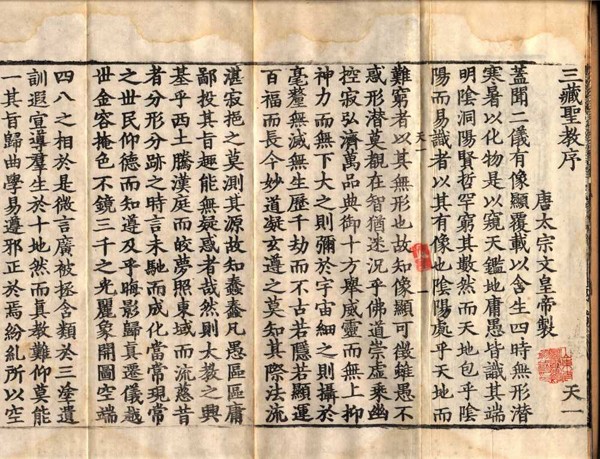 三藏聖教序
天一
唐太宗文皇帝製
蓋聞二儀有像顯覆載以含生四時無形潛
寒暑以化物是以窺天鑑地庸愚皆識其端
明陰洞陽賢哲罕窮其數然而天地包乎陰
陽而易識者以其有像也陰陽處乎天地而
天一
難窮者以其無形也故知像顯可徵雖愚不
惑形潛莫覩在智猶迷況乎佛道崇虛乘幽
控寂弘濟萬品典御十方舉威靈而無上抑
神力而無下大之則彌於宇宙細之則攝於
毫釐無滅無生歷千劫而不古若隱若顯運
百福而長今妙道凝玄遵之莫知其際法流
湛寂挹之莫測其源故知蠢蠢凡愚區區庸
鄙投其旨趣能無疑惑者哉然則大教之興
基乎西土騰漢庭而皎夢照東域而流慈昔
者分形分跡之時言未馳而成化當常現常
之世民仰德而知遵及乎晦影歸真遷儀越
世金容掩色不鏡三千之光麗象開圖空端
四八之相於是微言廣被拯含類於三塗遺
訓遐宣導羣生於十地然而真教難仰莫能
一其旨歸曲學易遵邪正於焉紛糺所以空